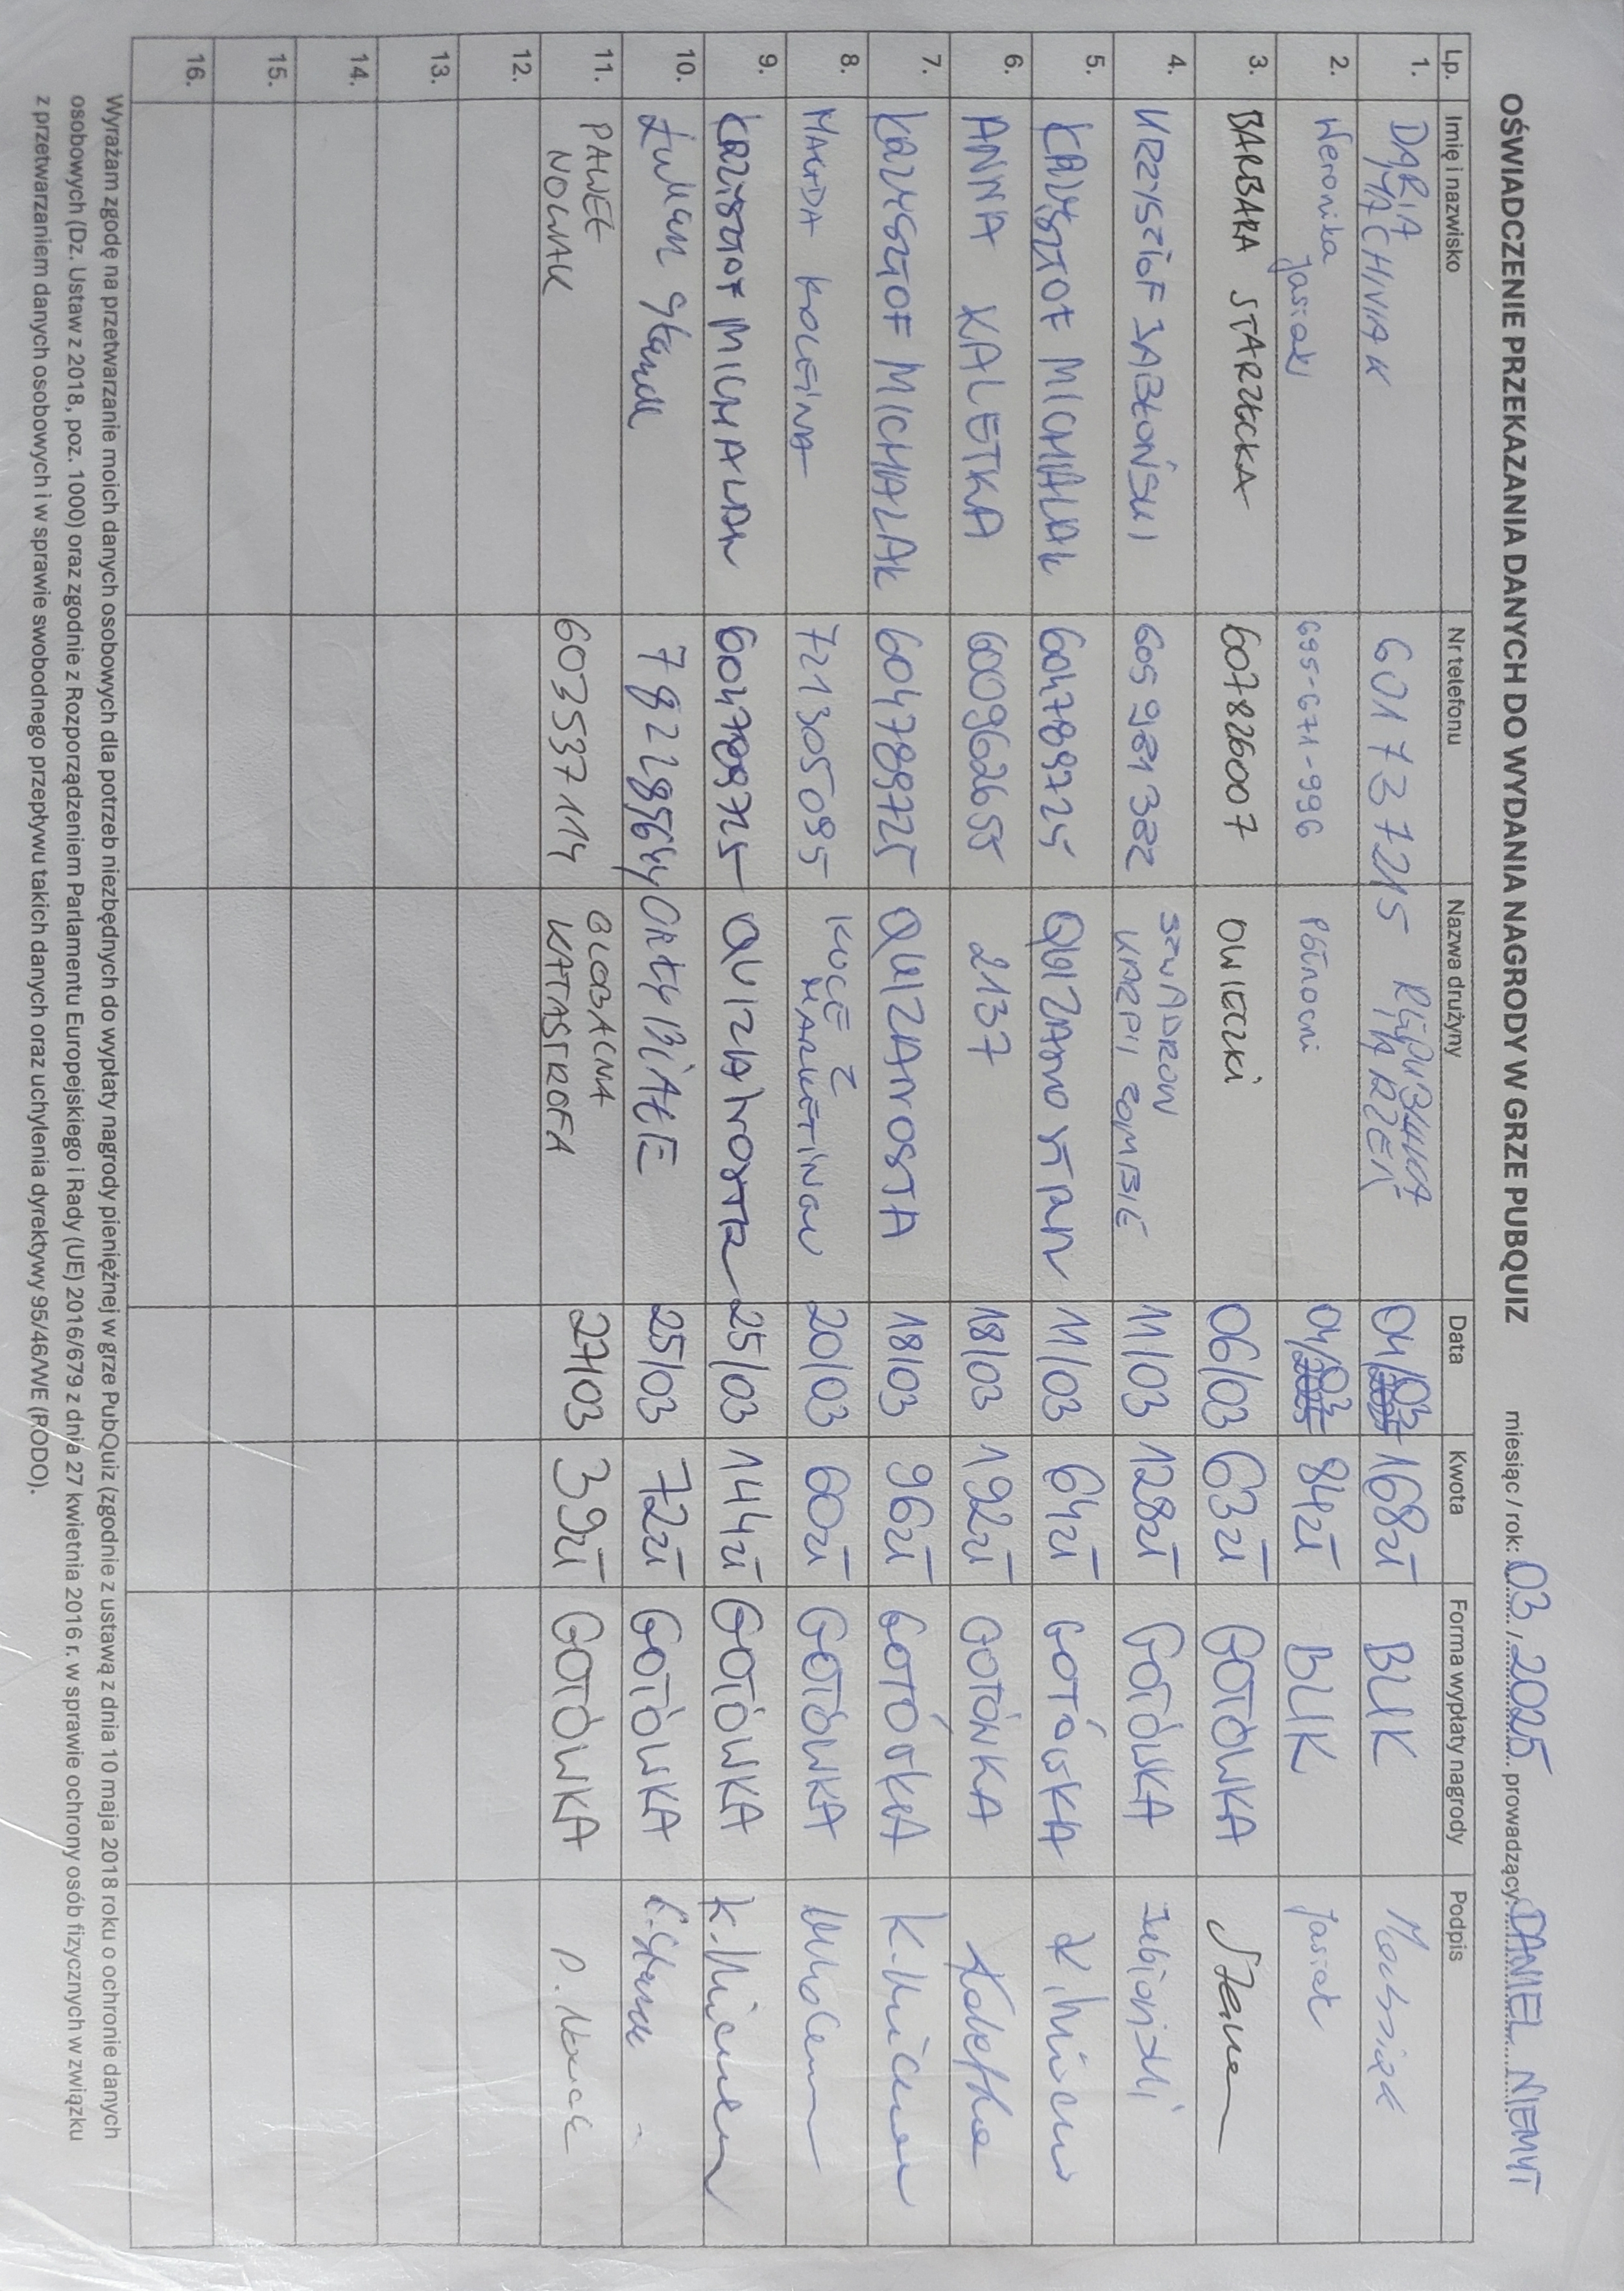 OŚWIADCZENIE PRZEKAZANIA DANYCH DO WYDANIA NAGRODY W GRZE PUBQUIZ miesiąc / rok: 03 / 2025 prowadzący: DANIEL NIEMYT
Lp. Imię i nazwisko Nr telefonu Nazwa drużyny Data Kwota Forma wypłaty nagrody Podpis
1. DARIA 601737215 04/03 168zł BLIK
2. Weronika Jasiak 695-671-996 Północni 04/03 84zł BLIK Jasiak
3. BARBARA STARZECKA 607826007 OWIECZKI 06/03 63zł GOTÓWKA
4. KRZYSZTOF JABŁOŃSKI 605981382 SZWADRON KARPII ZOMBIE 11/03 128zł GOTÓWKA
5. KRZYSZTOF MICHALAK 604789725 11/03 64zł GOTÓWKA
6. ANNA KALETKA 600962655 2137 18/03 192zł GOTÓWKA Kaletka
7. KRZYSZTOF MICHALAK 604789725 QUIZNANOSTRA 18/03 96zł GOTÓWKA
8. MAGDA 721305095 KOCE Z MARKETINGU 20/03 60zł GOTÓWKA
9. KRZYSZTOF MICHALAK 604789725 25/03 144zł GOTÓWKA
10. ORŁY BIAŁE 25/03 72zł GOTÓWKA
11. PAWEŁ NOWAK 603537114 GLOBALNA KATASTROFA 27/03 39zł GOTÓWKA P. Nowak
12.
13.
14.
15.
16.
Wyrażam zgodę na przetwarzanie moich danych osobowych dla potrzeb niezbędnych do wypłaty nagrody pieniężnej w grze PubQuiz (zgodnie z ustawą z dnia 10 maja 2018 roku o ochronie danych
osobowych (Dz. Ustaw z 2018, poz. 1000) oraz zgodnie z Rozporządzeniem Parlamentu Europejskiego i Rady (UE) 2016/679 z dnia 27 kwietnia 2016 r. w sprawie ochrony osób fizycznych w związku
z przetwarzaniem danych osobowych i w sprawie swobodnego przepływu takich danych oraz uchylenia dyrektywy 95/46/WE (RODO).